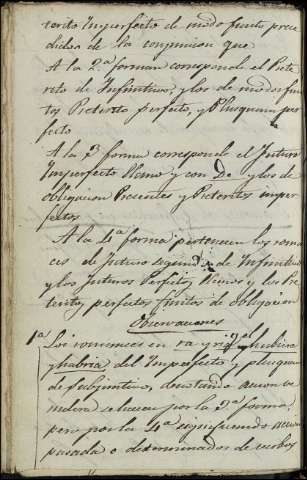 terito Imperfecto de modo finito prece
didos de la conjuncion que
A la 2ª forma corresponde el Prete
rito de Infinitivo, y los de modo fini
tos Preterito perfecto, y Plusquam per
fecto
A la 3ª forma corresponde el Futuro
Imperfecto llano y con De y los de
obligacion Presentes y Preteritos imper
fectos
A la 4ª forma pertenecen los roman
ces de Futuro segundo de Infinitivo
y los futuros Perfectos llanos y los Pre
teritos perfectos finitos de obligacion
Observaciones
1ª Los romances en ra y ria, y el hubiera
y habria del Imperfecto y plusquam
de subjuntivo, denotando accion ve
nidera se hacen por la 3ª forma,
pero por la 4ª significando accion
pasada o determinados de verbos